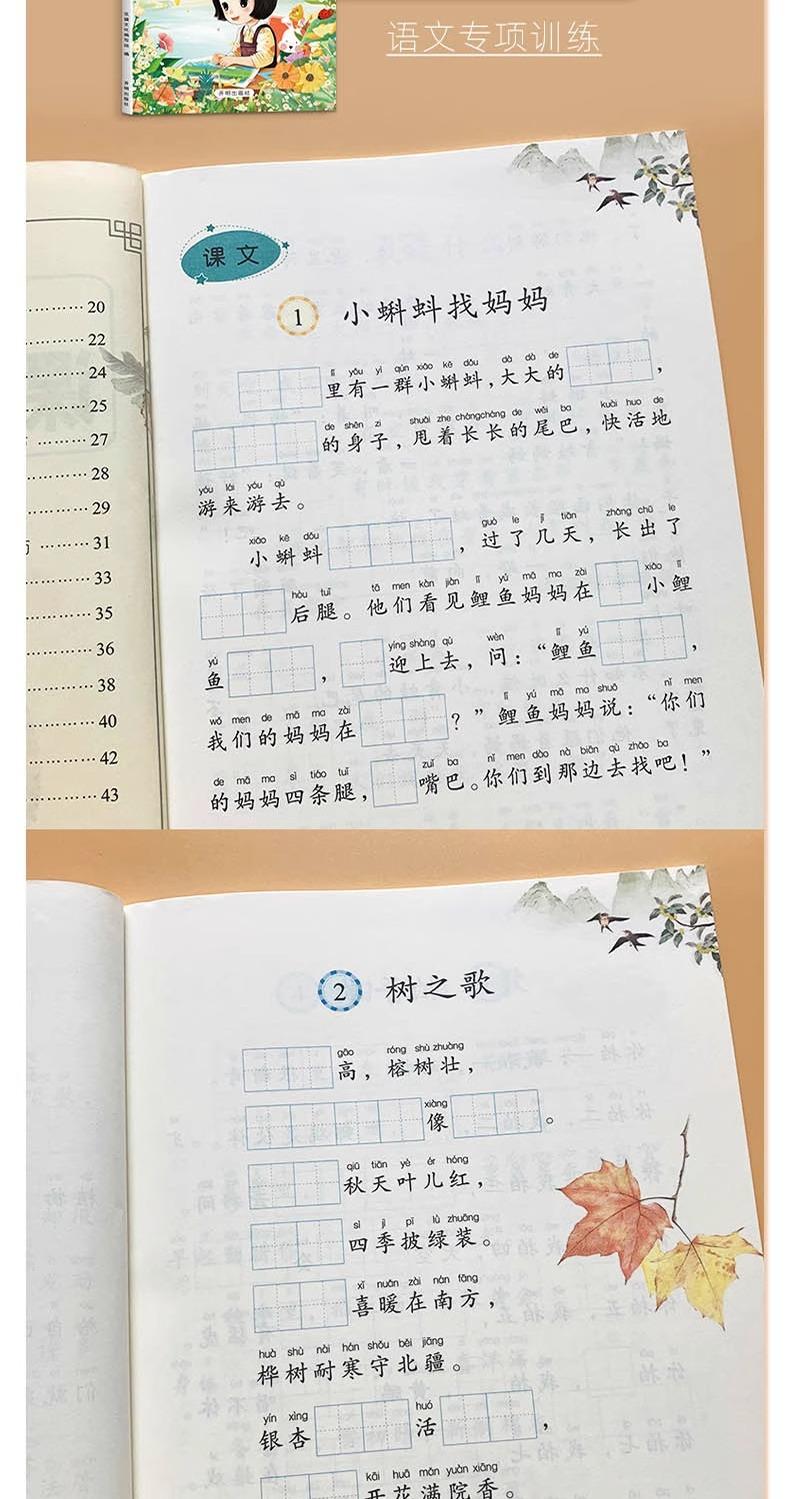 开明出版社
语文专项训练
20
22
24
25
27
28
29
31
33
35
36
38
40
42
43
课文
1 小蝌蚪找妈妈
lǐ yǒu yì qún xiǎo kē dǒu dà dà de
里有一群小蝌蚪，大大的，
de shēn zi shuǎi zhe chángcháng de wěi ba kuài huo de
的身子，甩着长长的尾巴，快活地
yóu lái yóu qù
游来游去。
xiǎo kē dǒu guò le jǐ tiān zhǎng chū le
小蝌蚪，过了几天，长出了
hòu tuǐ tā men kàn jiàn lǐ yú mā ma zài xiǎo lǐ
后腿。他们看见鲤鱼妈妈在小鲤
yú yíng shàng qù wèn lǐ yú
鱼，迎上去，问：“鲤鱼，
wǒ men de mā ma zài lǐ yú mā ma shuō nǐ men
我们的妈妈在？”鲤鱼妈妈说：“你们
de mā ma sì tiáo tuǐ zuǐ ba nǐ men dào nà biān qù zhǎo ba
的妈妈四条腿，嘴巴。你们到那边去找吧！”
2 树之歌
gāo róng shù zhuàng
高，榕树壮，
xiàng
像。
qiū tiān yè ér hóng
秋天叶儿红，
sì jì pī lǜ zhuāng
四季披绿装。
xǐ nuǎn zài nán fāng
喜暖在南方，
huà shù nài hán shǒu běi jiāng
桦树耐寒守北疆。
yín xìng huó
银杏活，
kāi huā mǎn yuàn xiāng
开花满院香。